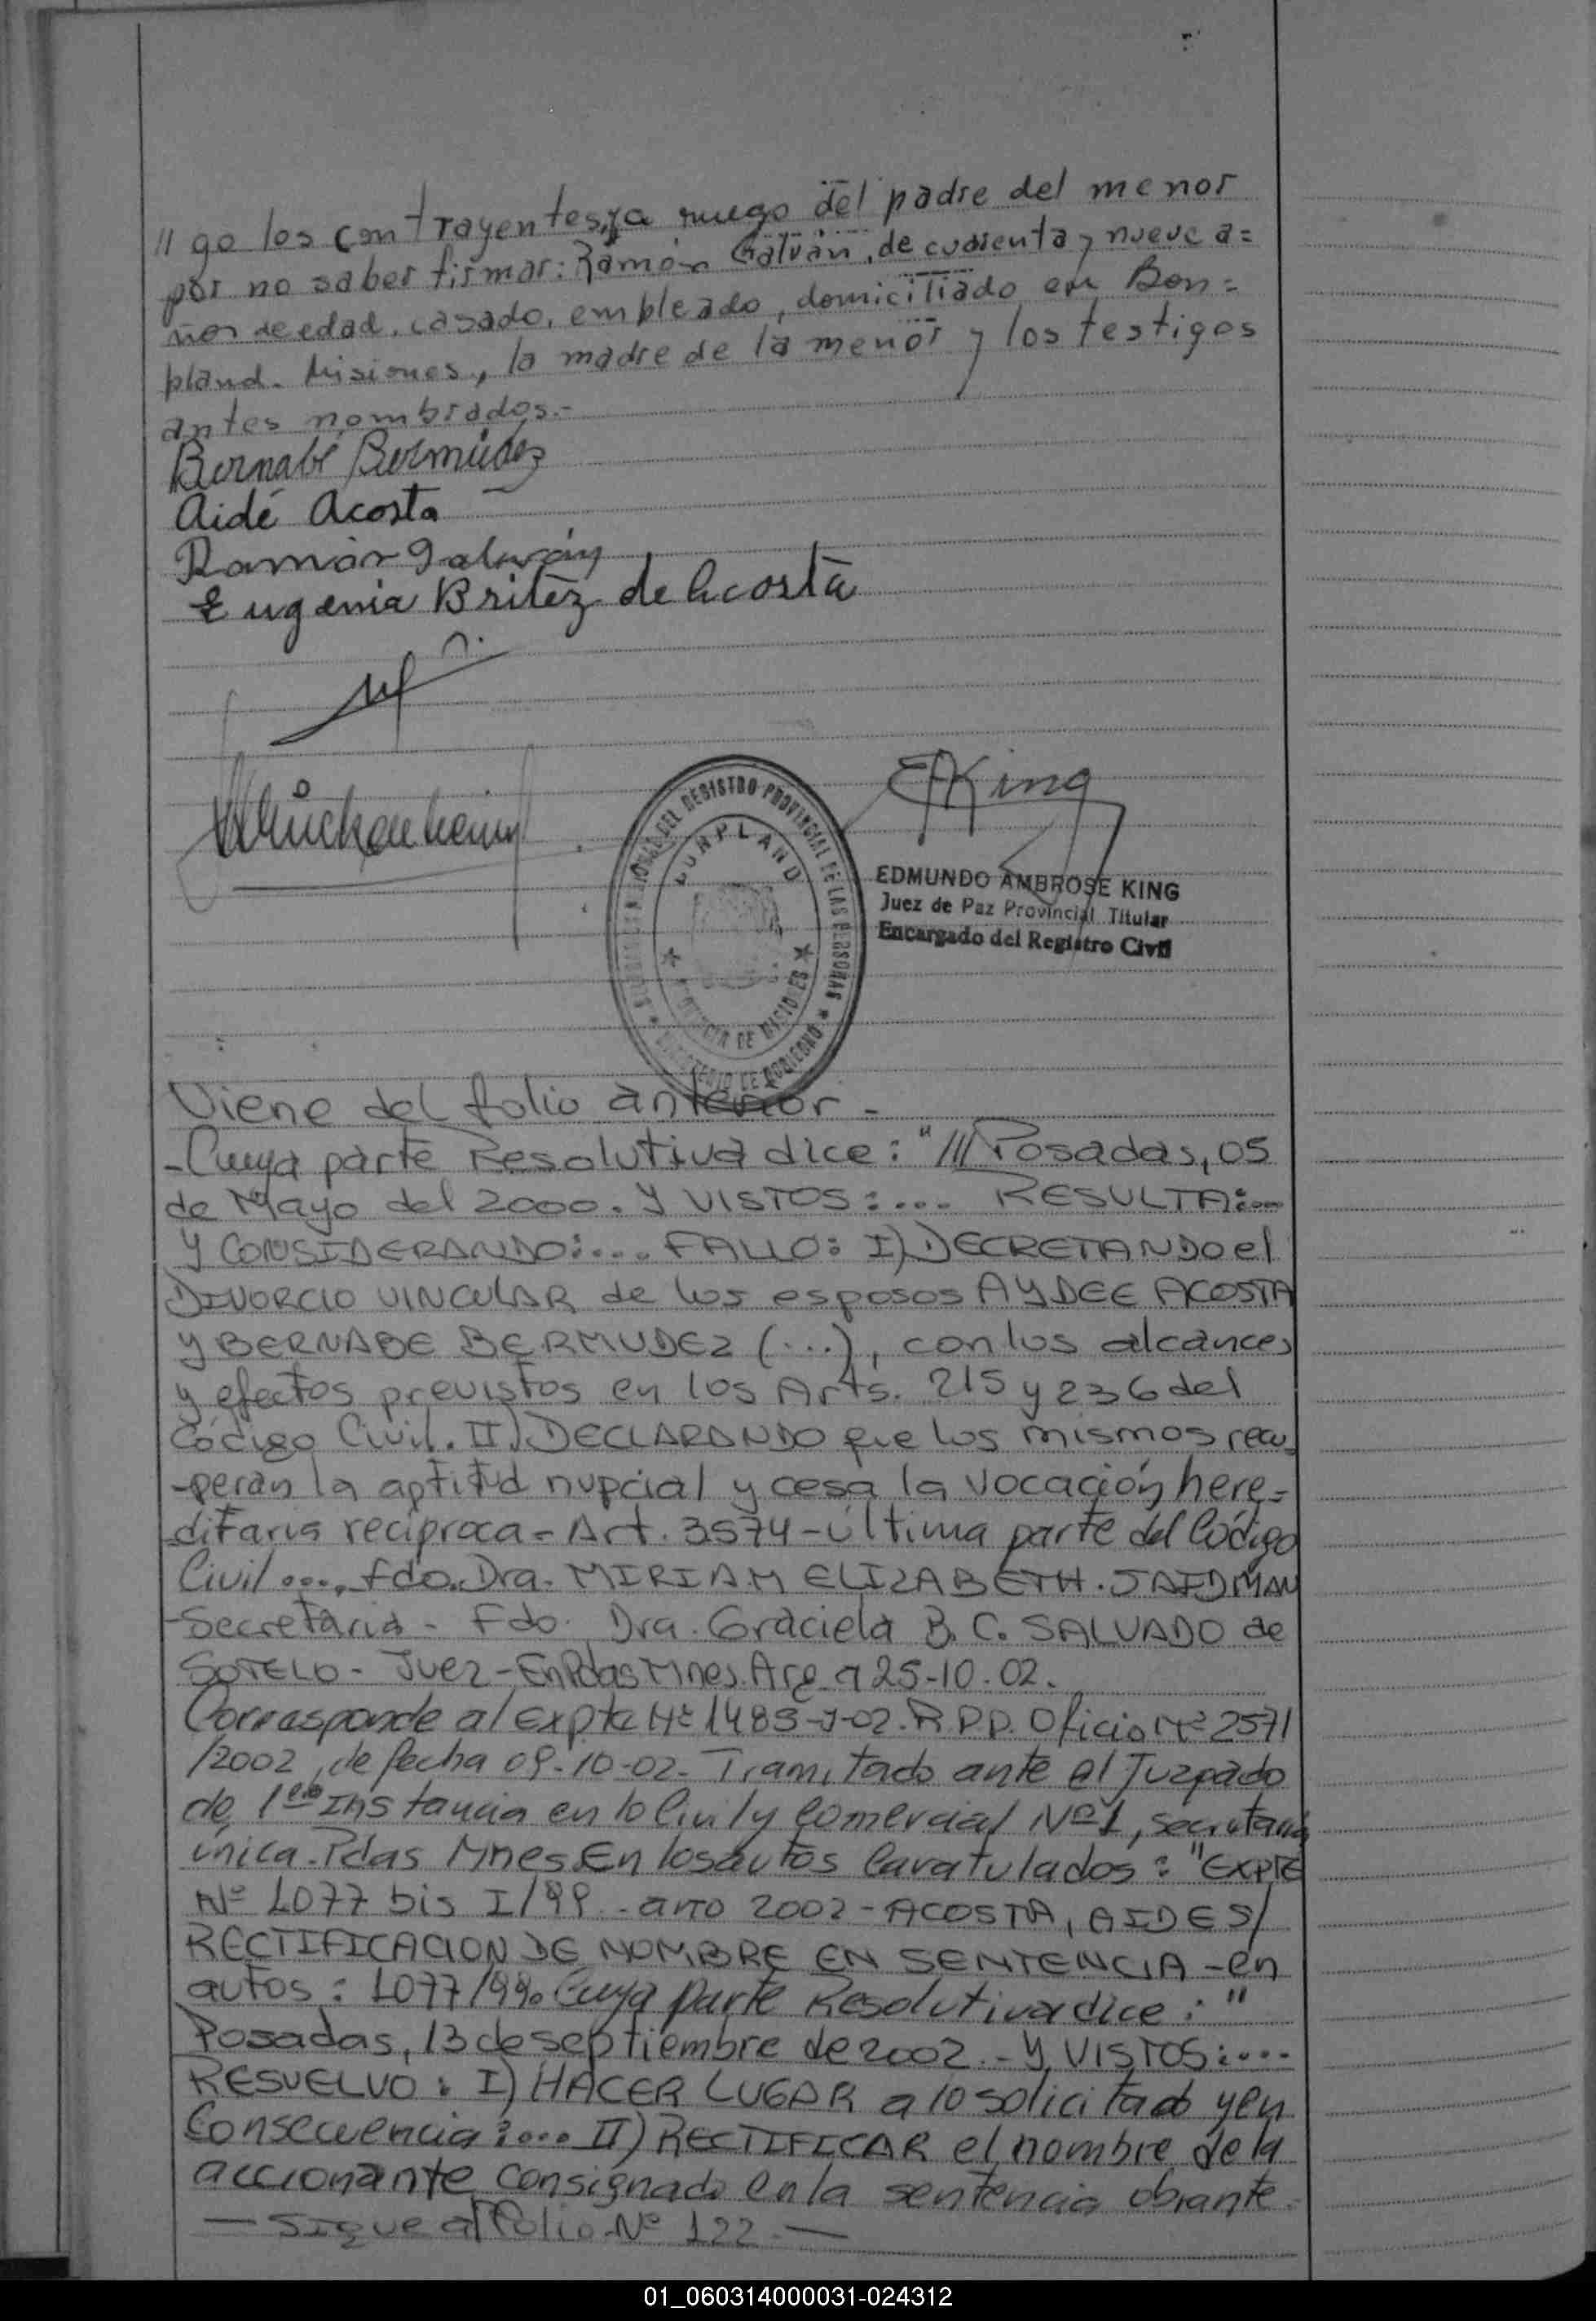 // go los contrayentes, ya ruego del padre del menor
por no saber firmar: Ramón Galván, de cuarenta y nueve a=
ños de edad, casado, embleado, domiciliado en Bon=
pland. Misiones, la madre de la menor y los testigos
antes nombrados.-
Bernabé Bermúdez
Aidé Acosta
Ramón Galván
Eugenia Britez de Acosta
EAKing
REGISTRO PROVINCIAL DE LAS PERSONAS
BONPLAND
PROVINCIA DE MISIONES
MINISTERIO DE GOBIERNO
EDMUNDO AMBROSE KING
Juez de Paz Provincial Titular
Encargado del Registro Civil
Viene del folio anterior -
-Cuya parte Resolutiva dice: "/// Posadas, 05
de Mayo del 2000. Y VISTOS:.... RESULTA:...
Y CONSIDERANDO:.... FALLO: I) DECRETANDO el
DIVORCIO VINCULAR de los esposos AYDEE ACOSTA
y BERNABE BERMUDEZ (...), con los alcances
y efectos previstos en los Arts. 215 y 236 del
Código Civil. II) DECLARANDO que los mismos recu-
-peran la aptitud nupcial y cesa la vocación here=
ditaria recíproca - Art. 3574 - última parte del Código
Civil...., Fdo. Dra. MIRIAM ELIZABETH. JAEDMAN
-Secretaria - Fdo. Dra. Graciela B. C. SALVADO de
SOTELO - Juez - En Pdas Mnes. Arg. a 25-10-02.
Corresponde al Expte Nº 1485-J-02. R.P.P. Oficio Nº 2571
/2002, de fecha 09-10-02. Tramitado ante el Juzgado
de 1era Instancia en lo Civil y Comercial Nº 1, secretaria
única. Pdas Mnes. En los autos Caratulados: "EXPTE
Nº 1077 bis I/99 - año 2002 - ACOSTA, AIDE S/
RECTIFICACION DE NOMBRE EN SENTENCIA - en
autos: 1077/99. Cuya parte Resolutiva dice: "
Posadas, 13 de septiembre de 2002. - Y VISTOS:....
RESUELVO: I) HACER LUGAR a lo solicitado y en
Consecuencia:.... II) RECTIFICAR el nombre de la
accionante consignado en la sentencia obrante.
— Sigue al Folio Nº 122. —
01_060314000031-024312